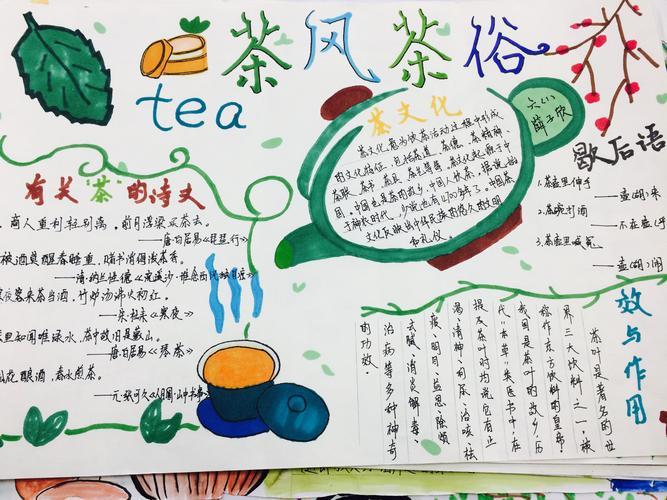 茶风茶俗
tea
六(1)
薛子欣
茶文化
茶文化意为饮茶活动过程中形成
的文化特征,包括茶道、茶德、茶精神、
茶联、茶书、茶具、茶画等等。茶文化起源于中
国。中国也是茶的故乡,中国人饮茶,据说始
于神农时代,少说也有4700多年了。中国茶
文化反映出中华民族的悠久的文明
和礼仪。
歇后语
1.茶壶里伸手
——壶(胡)来
2.茶碗打酒
——不在壶(乎)
3.茶壶里喊冤
——壶(胡)闹
有关“茶”的诗文
商人重利轻别离,前月浮梁买茶去。
——唐·白居易《琵琶行》
被酒莫惊春睡重,赌书消得泼茶香。
——清·纳兰性德《浣溪沙·谁念西风独自凉》
寒夜客来茶当酒,竹炉汤沸火初红。
——宋·杜耒《寒夜》
琴里知闻唯渌水,茶中故旧是蒙山。
——唐·白居易《琴茶》
山花酿酒,春水煎茶。
——元·张可久《人月圆·山中书事》
效与作用
茶叶是著名的世
界三大饮料之一,被
俗作“东方饮料的皇帝”。
我国是茶叶的故乡,历
代“本草”类医书中,在
提及茶叶时均说它有止
渴、清神、利尿、治咳、祛
痰、明目、益思、除烦
去腻、消炎解毒、
治病等多种神奇
的功效。